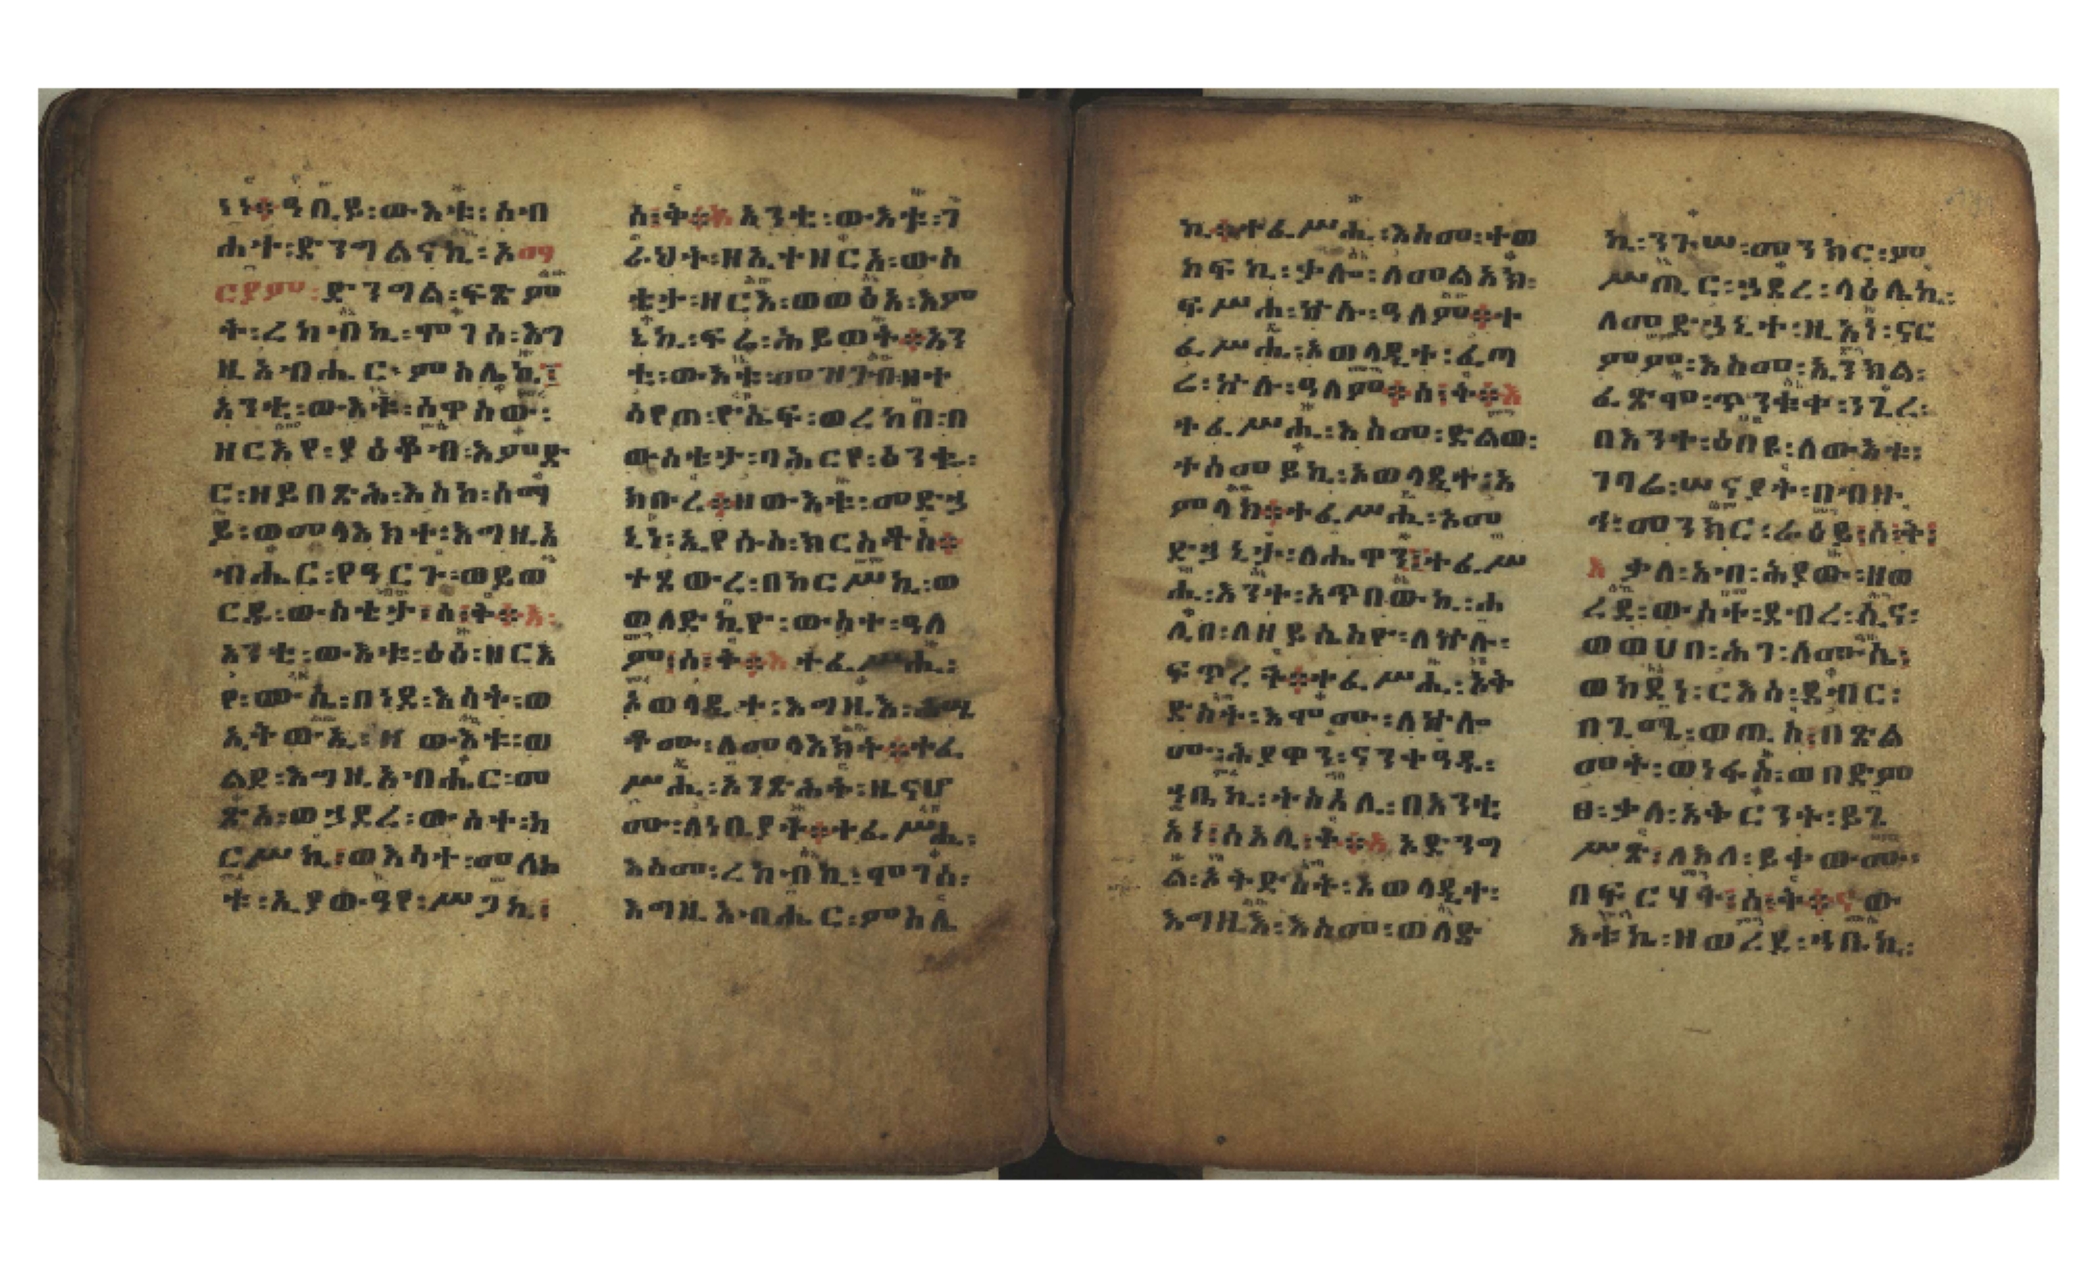 ነነ፨ዓቢይ፡ውእቱ፡ስብ
ሐተ፡ድንግልናኪ፡ኦማ
ርያም፡ድንግል፡ፍጽም
ት፡ረከብኪ፡ሞገሰ፡እግ
ዚአብሔር፡ምስሌኪ፤
አንቲ፡ውእቱ፡ሰዋስው፡
ዘርእየ፡ያዕቆብ፡እምድ
ር፡ዘይበጽሕ፡እስከ፡ሰማ
ይ፡ወመላእክተ፡እግዚአ
ብሔር፡የዓርጉ፡ወይወ
ርዱ፡ውስቴታ፡ሰ፡ት፨አ፡
አንቲ፡ውእቱ፡ዕፅ፡ዘርእ
የ፡ሙሴ፡በነደ፡እሳት፡ወ
ኢትውኢ፡ዘውእቱ፡ወ
ልደ፡እግዚአብሔር፡መ
ጽአ፡ወኃደረ፡ውስተ፡ከ
ርሥኪ፡ወእሳተ፡መለኮ
ቱ፡ኢያውዓየ፡ሥጋኪ፡
ሰ፡ት፨አ፡አንቲ፡ውእቱ፡ገ
ራህት፡ዘኢተዘርአ፡ውስ
ቴታ፡ዘርእ፡ወወፅአ፡እም
ኔኪ፡ፍሬ፡ሕይወት፨አን
ቲ፡ውእቱ፡መዝገብ፡ዘተ
ሳየጠ፡ዮሴፍ፡ወረከበ፡በ
ውስቴታ፡ባሕርየ፡ዕንቈ፡
ክቡረ፨ዘውእቱ፡መድኃ
ኒነ፡ኢየሱስ፡ክርስቶስ፨
ተጸውረ፡በከርሥኪ፡ወ
ወለድኪዮ፡ውስተ፡ዓለ
ም፡ሰ፡ት፨አ፡ተፈሥሒ፡
ኦወላዲተ፡እግዚእ፡ሐሤ
ቶሙ፡ለመላእክት፨ተፈ
ሥሒ፡አንጽሕት፡ዜናሆ
ሙ፡ለነቢያት፨ተፈሥሒ፡
እስመ፡ረከብኪ፡ሞገሰ፡
እግዚአብሔር፡ምስሌ
ኪ፨ተፈሥሒ፡እስመ፡ተወ
ከፍኪ፡ቃሎ፡ለመልአክ፡
ፍሥሐ፡ኵሉ፡ዓለም፨ተ
ፈሥሒ፡ኦወላዲተ፡ፈጣ
ሬ፡ኵሉ፡ዓለም፨ሰ፡ት፨አ
ተፈሥሒ፡እስመ፡ድልወ፡
ተሰመይኪ፡ኦወላዲተ፡አ
ምላክ፨ተፈሥሒ፡ኦመ
ድኃኒታ፡ለሔዋን፤ተፈሥ
ሒ፡እንተ፡አጥበውኪ፡ሐ
ሊበ፡ለዘይሴስዮ፡ለኵሉ፡
ፍጥረት፨ተፈሥሒ፡ኦት
ድስት፡እሞሙ፡ለኵሎ
ሙ፡ሕያዋን፡ናንቀዓዱ፡
ኀቤኪ፡ትስአሊ፡በእንቲ
አነ፡ሰአሊ፡ት፨አ፡ኦድንግ
ል፡ኦትድስት፡ኦወላዲተ፡
እግዚእ፡እስመ፡ወለድ
ኪ፡ንጉሠ፡መንክር፡ም
ሥጢር፡ኃደረ፡ላዕሌኪ፡
ለመድኃኒተ፡ዚአነ፡ናር
ምም፡እስመ፡ኢንክል፡
ፈጽሞ፡ጥንቁቀ፡ነጊረ፡
በእንተ፡ዕበዩ፡ለውእቱ፡
ገባሬ፡ሠናያት፡በብዙ
ኁ፡መንክር፡ራዕይ፡ሰ፡ት፡
አ፡ቃለ፡አብ፡ሕያው፡ዘወ
ረደ፡ውስተ፡ደብረ፡ሲና፡
ወወሀበ፡ሕገ፡ለሙሴ፡
ወከደነ፡ርእሰ፡ደብር፡
በጊሜ፡ወጢስ፡በጽል
መት፡ወነፋስ፡ወበድም
ፀ፡ቃለ፡አቅርንት፡ይጌ
ሥጽ፡ለእለ፡ይቀውሙ፡
በፍርሃት፡ሰ፡ት፨ናው
እቱኬ፡ዘወረደ፡ኀቤኪ፡